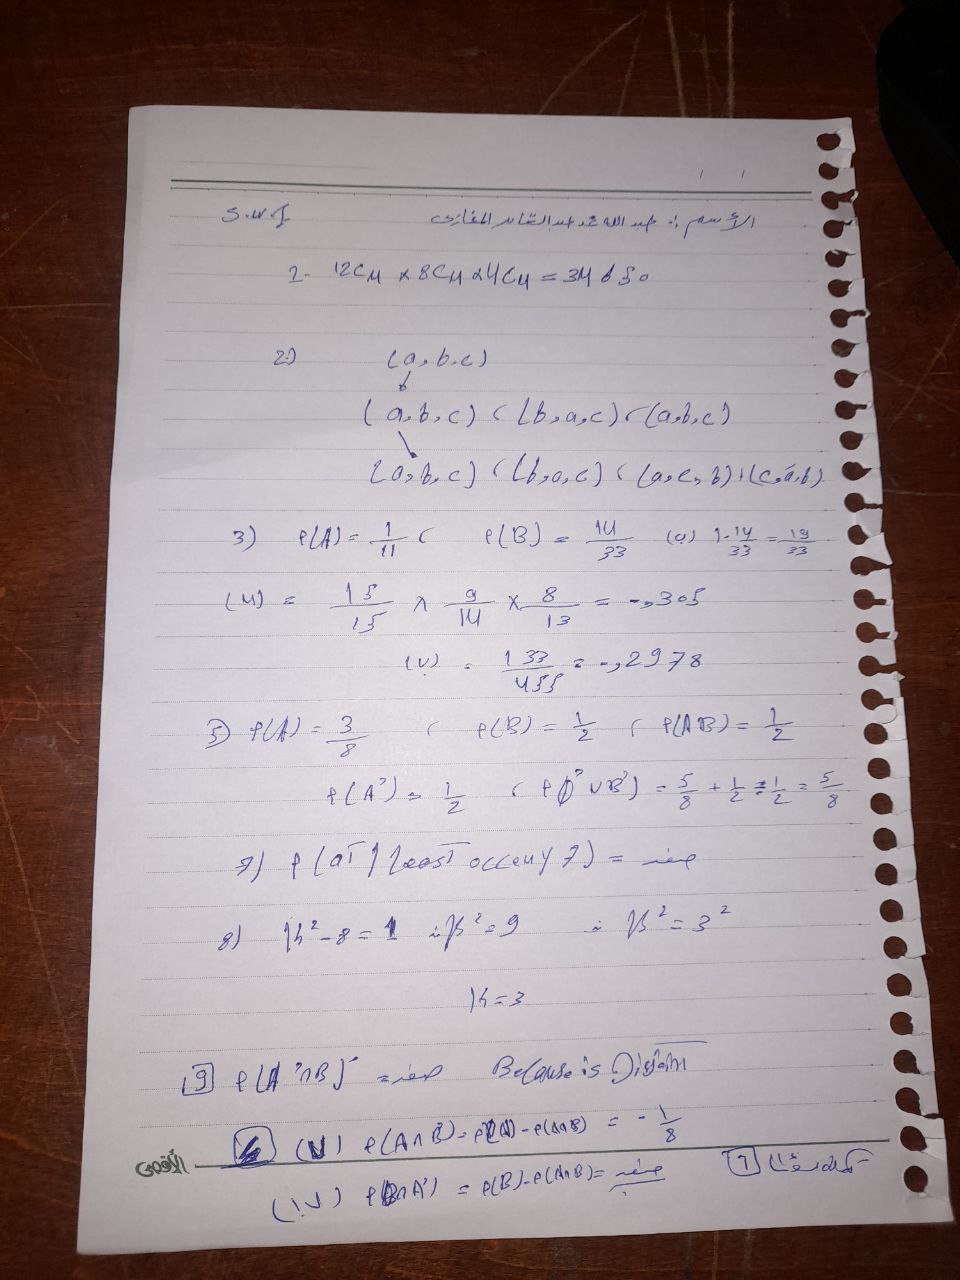 الأسم :. عبد الله محمد عبد القادر المغازى
1- 12C4 x 8C4 x 4C4 = 34650
2-) (a,b,c)
(a,b,c) ( (b,a,c) ( (a,b,c)
(a,b,c) ( (b,a,c) ( (a,c,b) , (c,a,b)
3) P(A) = 1/11 ( P(B) = 14/33 1-14/33 = 19/33
(4) = 15/15 x 9/14 x 8/13 = -,305
(V) = 133/455 = -,2978
5) P(A) = 3/8 ( P(B) = 1/2 ( P(AB) = 1/2
P(A') = 1/2 ( = 5/8 + 1/2 = 1/2 = 5/8
7) P(at least 7) = صفر
8) K²-8=1 ∴ K²=9 ∴ K²=3²
K=3
9 P(A'∩B) = صفر Because is Disjoin
P(A∩B') = - P(A∩B) = - 1/8
تكملة سؤال
= P(B) - P(A∩B) = صفر
الأقصى